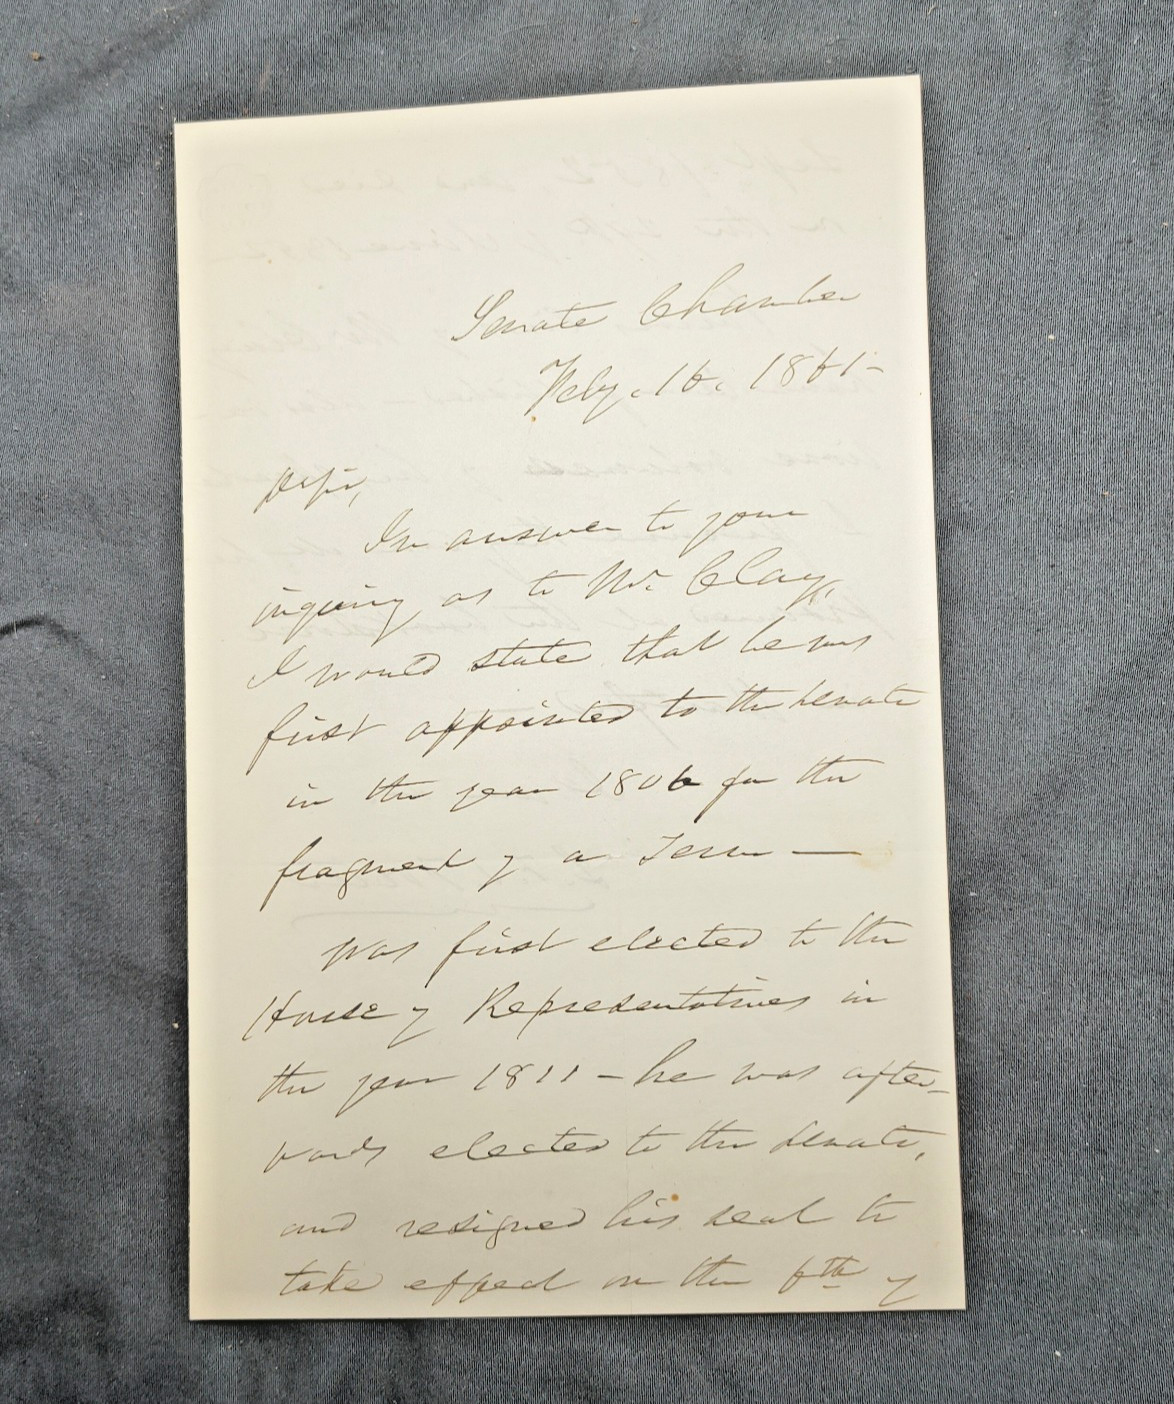 Senate Chamber
Feby. 16. 1861-
Dr Sir,
In answer to your
inquiry, as to Mr. Clay,
I would state that he was
first appointed to the Senate
in the year 1806 for the
fragment of a Term —
Was first elected to the
House of Representatives in
the year 1811 - he was after-
wards elected to the Senate,
and resigned his seat to
take effect on the 6th of